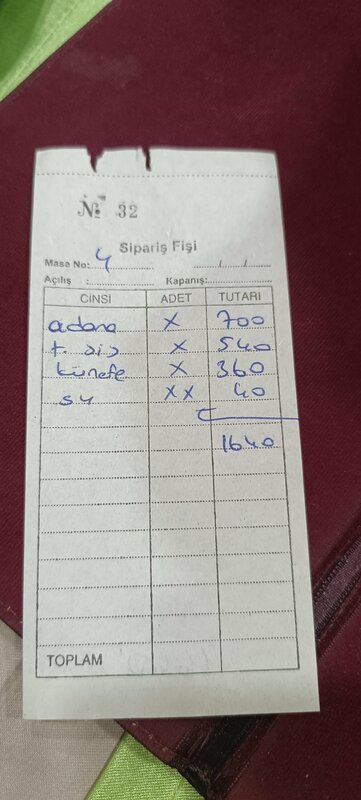 № 32
Sipariş Fişi
Masa No: 4 / /
Açılış : Kapanış:
CİNSİ ADET TUTARI
adana X 700
t. şiş X 540
künefe X 360
su XX 40
1640
TOPLAM